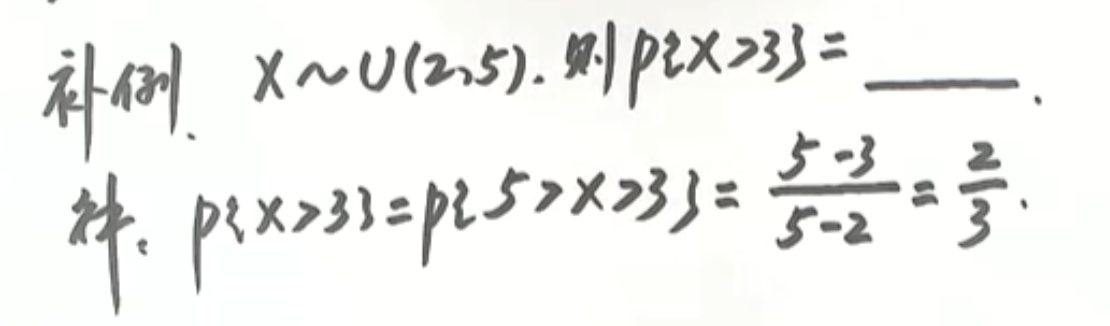 补例. X~U(2,5). 则P{X>3}=____.
解. P{X>3}=P{5>X>3}=\frac{5-3}{5-2}=\frac{2}{3}.